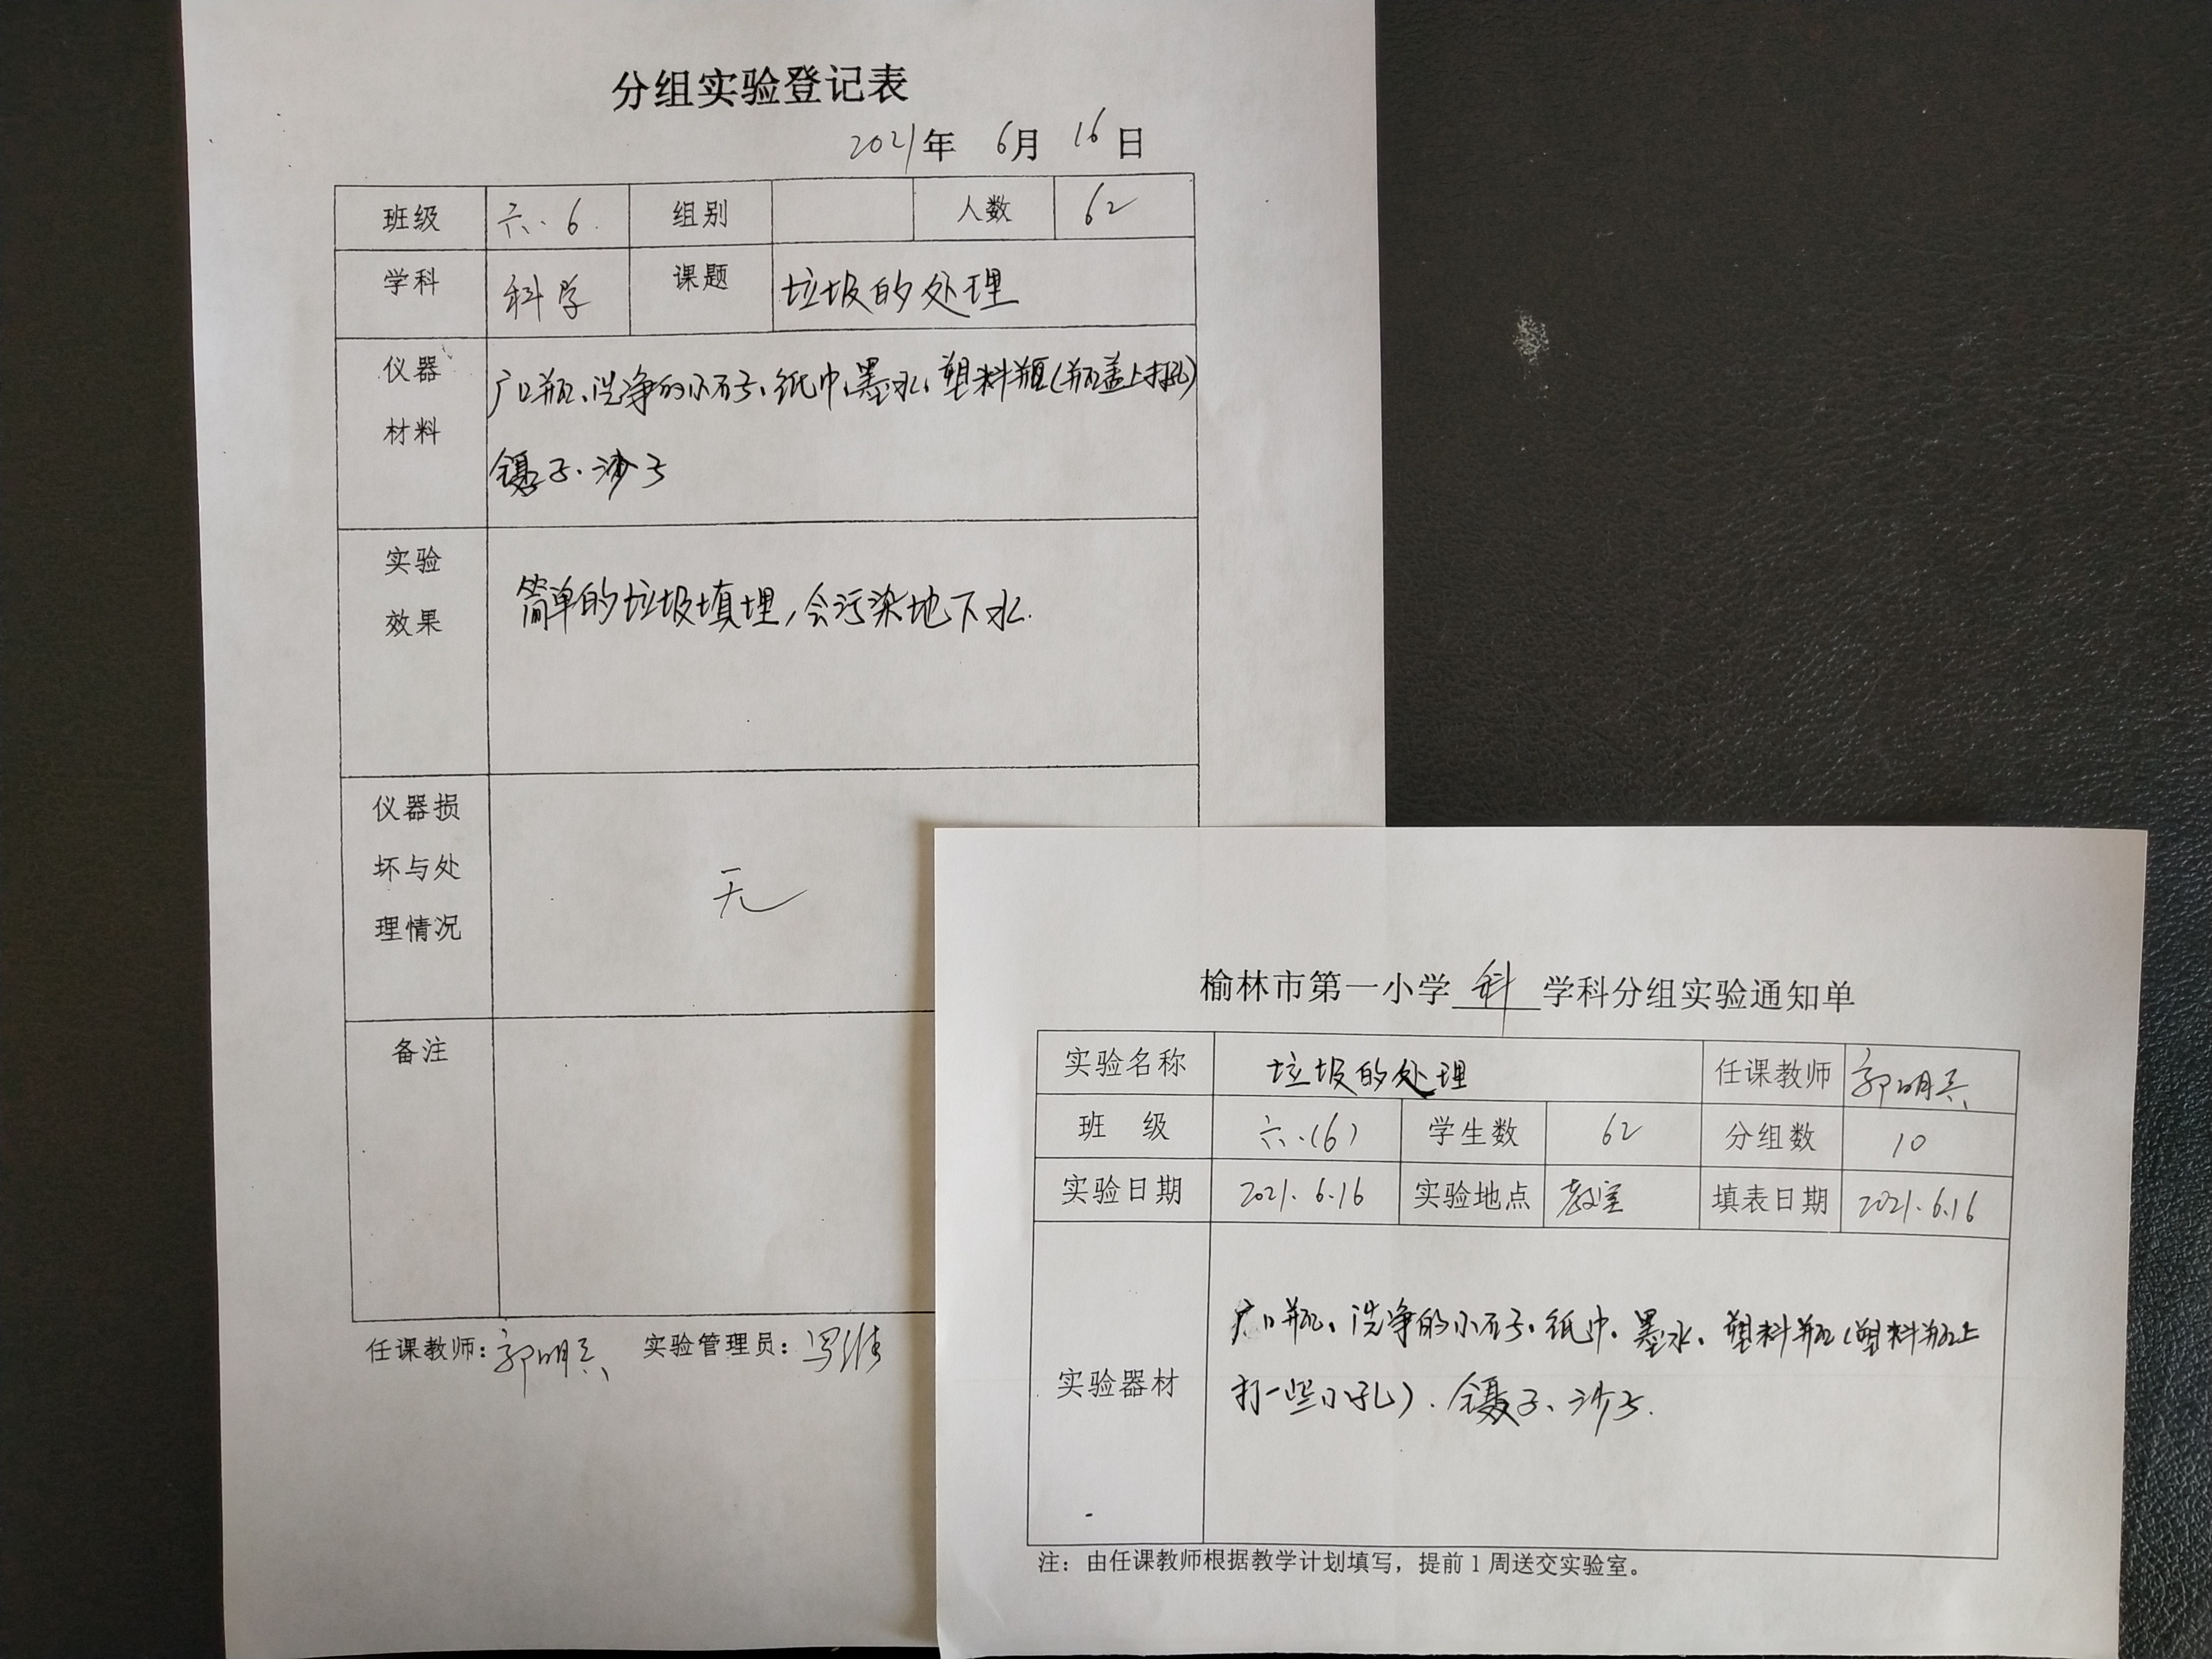 分组实验登记表
2021年 6月 16日
班级 六、6. 组别 人数 62
学科 科学 课题 垃圾的处理
仪器
材料
广口瓶、洗净的小石子、纸巾、墨水、塑料瓶(瓶盖上打孔)
镊子、沙子
实验
效果
简单的垃圾填埋,会污染地下水.
仪器损
坏与处
理情况
无
备注
任课教师:郭明兵 实验管理员:
榆林市第一小学 科 学科分组实验通知单
实验名称 垃圾的处理 任课教师 郭明兵
班 级 六.(6) 学生数 62 分组数 10
实验日期 2021.6.16 实验地点 教室 填表日期 2021.6.16
实验器材
广口瓶、洗净的小石子、纸巾、墨水、塑料瓶(塑料瓶上
打一些小孔)、镊子、沙子.
注：由任课教师根据教学计划填写，提前1周送交实验室。